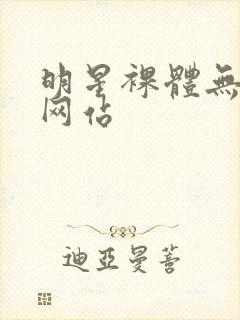 明星裸體無
网站
迪亞曼菩